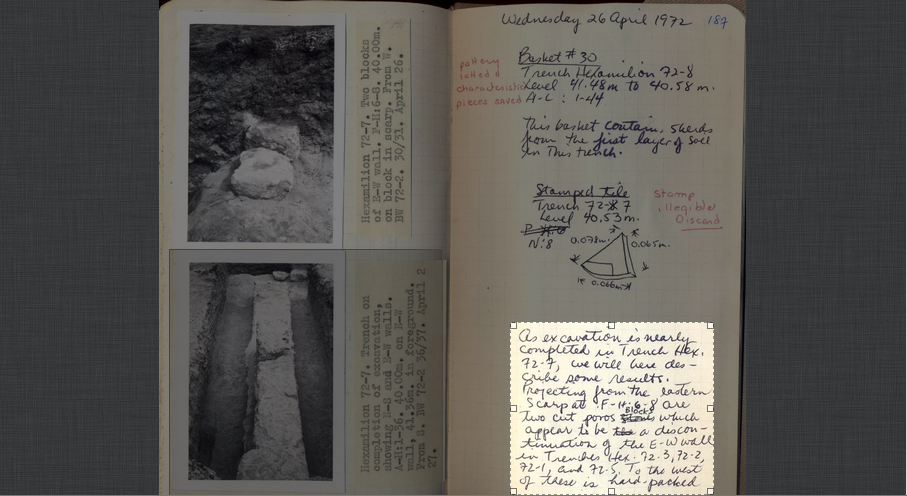 Hexamilion 72-7. Two blocks
of E-W wall. F-H:6-8. 40.00m.
on block in scarp. From W.
BW 72-2. 30/31. April 26.
Hexamilion 72-7. Trench on
completion of excavation,
showing N-S and E-W walls.
A-H:1-36. 40.00m. on E-W
wall, 41.36m. in foreground.
From S. BW 72-2 36/37. April 2
27.
Wednesday 26 April 1972 187
Basket # 30
Trench Hexamilion 72-8
Level 41.48m to 40.58 m.
A-C : 1-44
pottery
lotted &
characteristic
pieces saved
This basket contains sherds
from the first layer of soil
in this trench.
Stamped tile
Trench 72-7
Level 40.53m.
N:8
Stamp
illegible
Discard
0.073m.
0.065m.
0.066m
As excavation is nearly
completed in Trench Hex.
72-7, we will here des-
cribe some results.
Projecting from the eastern
Scarp at F-H:6-8 are
two cut poros Blocks which
appear to be a discon-
tinuation of the E-W wall
in Trenches Hex. 72-3, 72-2,
72-1, and 72-5. To the west
of these is hard-packed